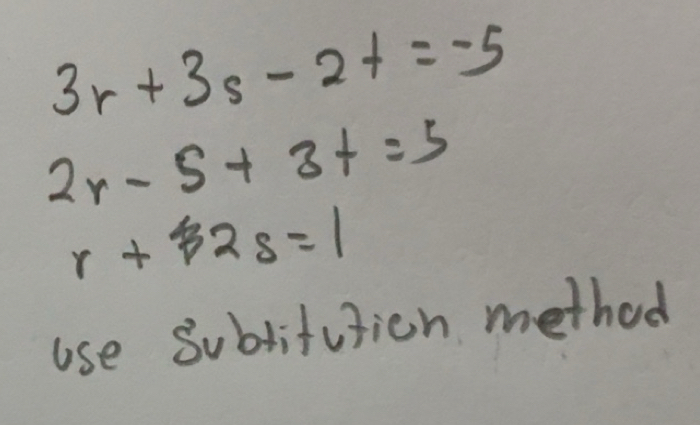 3r + 3s - 2t = -5
2r - s + 3t = 5
r + 2s = 1
use subtitution method